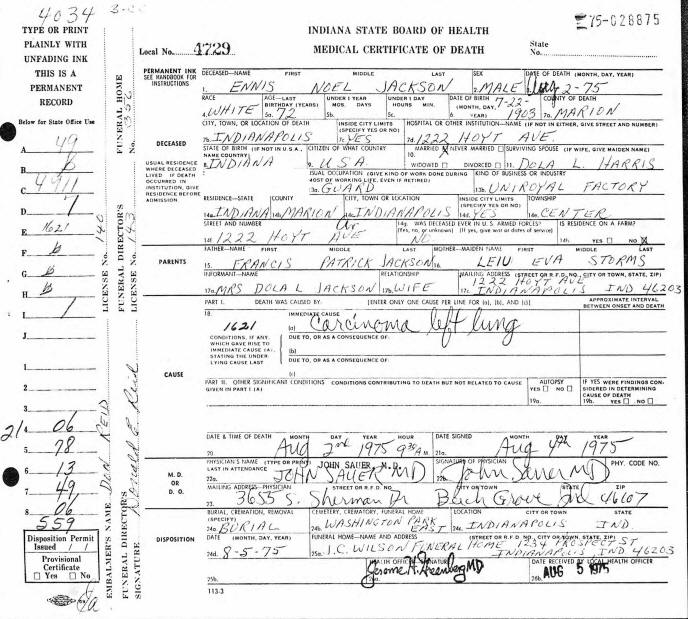 4034
TYPE OR PRINT
PLAINLY WITH
UNFADING INK
THIS IS A
PERMANENT
RECORD
Below for State Office Use
A 49
B 6
C 491
D 1
E 1621
F 6
G 6
H 6
I 1
J
1
2
3
21 4 06
5 78
6 13
7 49
8 06
559
Disposition Permit
Issued 1
Provisional
Certificate
Yes No
EMBALMER'S NAME Don Reid LICENSE No. 140 FUNERAL HOME No. 356
FUNERAL DIRECTOR'S SIGNATURE FUNERAL DIRECTOR'S LICENSE No. 143
INDIANA STATE BOARD OF HEALTH
MEDICAL CERTIFICATE OF DEATH
75-028875
Local No. 4729
State No.
PERMANENT INK
SEE HANDBOOK FOR INSTRUCTIONS
DECEASED—NAME FIRST MIDDLE LAST SEX DATE OF DEATH (MONTH, DAY, YEAR)
1. ENNIS NOEL JACKSON 2. MALE 3. Aug 2-75
RACE AGE—LAST BIRTHDAY (YEARS) UNDER 1 YEAR MOS. DAYS UNDER 1 DAY HOURS MIN. DATE OF BIRTH (MONTH, DAY, YEAR) COUNTY OF DEATH
4. WHITE 5a. 72 5b. 5c. 6. 7-22-1903 7a. MARION
DECEASED
CITY, TOWN, OR LOCATION OF DEATH INSIDE CITY LIMITS (SPECIFY YES OR NO) HOSPITAL OR OTHER INSTITUTION—NAME (IF NOT IN EITHER, GIVE STREET AND NUMBER)
7b. INDIANAPOLIS 7c. YES 7d. 1222 HOYT AVE.
USUAL RESIDENCE WHERE DECEASED LIVED IF DEATH OCCURRED IN INSTITUTION, GIVE RESIDENCE BEFORE ADMISSION
STATE OF BIRTH (IF NOT IN U.S.A., NAME COUNTRY) CITIZEN OF WHAT COUNTRY MARRIED NEVER MARRIED SURVIVING SPOUSE (IF WIFE, GIVE MAIDEN NAME)
8. INDIANA 9. USA 10. WIDOWED DIVORCED 11. DOLA L. HARRIS
USUAL OCCUPATION (GIVE KIND OF WORK DONE DURING MOST OF WORKING LIFE, EVEN IF RETIRED) KIND OF BUSINESS OR INDUSTRY
13a. GUARD 13b. UNIROYAL FACTORY
RESIDENCE—STATE COUNTY CITY, TOWN OR LOCATION INSIDE CITY LIMITS (SPECIFY YES OR NO) TOWNSHIP
14a. INDIANA 14b. MARION 14c. INDIANAPOLIS 14d. YES 14e. CENTER
STREET AND NUMBER 14g. WAS DECEASED EVER IN U.S. ARMED FORCES? (Yes, no, or unknown) (If yes, give war or dates of service) IS RESIDENCE ON A FARM?
14f. 1222 HOYT AVE NO 14h. YES NO X
PARENTS
FATHER—NAME FIRST MIDDLE LAST MOTHER—MAIDEN NAME FIRST MIDDLE LAST
15. FRANCIS PATRICK JACKSON 16. LEIU EVA STORMS
INFORMANT—NAME RELATIONSHIP MAILING ADDRESS (STREET OR R.F.D. NO., CITY OR TOWN, STATE, ZIP)
17a. MRS DOLA L JACKSON 17b. WIFE 17c. 1222 HOYT AVE INDIANAPOLIS IND 46203
PART I. DEATH WAS CAUSED BY: [ENTER ONLY ONE CAUSE PER LINE FOR (a), (b), AND (c)] APPROXIMATE INTERVAL BETWEEN ONSET AND DEATH
18. IMMEDIATE CAUSE
1621 (a) Carcinoma left lung
CONDITIONS, IF ANY, WHICH GAVE RISE TO IMMEDIATE CAUSE (A), STATING THE UNDERLYING CAUSE LAST
DUE TO, OR AS A CONSEQUENCE OF:
(b)
DUE TO, OR AS A CONSEQUENCE OF:
(c)
CAUSE
PART II. OTHER SIGNIFICANT CONDITIONS CONDITIONS CONTRIBUTING TO DEATH BUT NOT RELATED TO CAUSE GIVEN IN PART I (A) AUTOPSY IF YES WERE FINDINGS CONSIDERED IN DETERMINING CAUSE OF DEATH
19a. YES NO 19b. YES NO
DATE & TIME OF DEATH MONTH DAY YEAR HOUR DATE SIGNED MONTH DAY YEAR
20. Aug 2nd 1975 9:30 A M. 21a. Aug 4th 1975
M.D. OR D.O.
PHYSICIAN'S NAME (TYPE OR PRINT) LAST IN ATTENDANCE JOHN SAUER, M.D. SIGNATURE OF PHYSICIAN PHY. CODE NO.
22a. JOHN SAUER MD 22b. John Sauer MD
MAILING ADDRESS—PHYSICIAN STREET OR R.F.D. NO. CITY OR TOWN STATE ZIP
23. 3655 S. Sherman Dr Beech Grove Ind 46107
DISPOSITION
BURIAL, CREMATION, REMOVAL (SPECIFY) CEMETERY, CREMATORY, FUNERAL HOME LOCATION CITY OR TOWN STATE
24a. BURIAL 24b. WASHINGTON PARK EAST 24c. INDIANAPOLIS IND.
DATE (MONTH, DAY, YEAR) FUNERAL HOME—NAME AND ADDRESS (STREET OR R.F.D. NO., CITY OR TOWN, STATE, ZIP)
24d. 8-5-75 25a. J.C. WILSON FUNERAL HOME 1234 PROSPECT ST INDIANAPOLIS IND 46203
25b. HEALTH OFFICER SIGNATURE DATE RECEIVED BY LOCAL HEALTH OFFICER
Jerome H. Greenberg MD 26b. AUG 5 1975
113-3